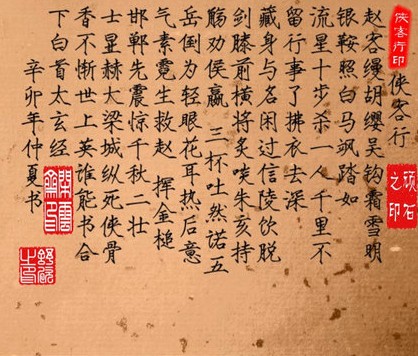 侠客行印
侠客行
之印
赵客缦胡缨吴钩霜雪明
银鞍照白马飒踏如
流星十步杀一人千里不
留行事了拂衣去深
藏身与名闲过信陵饮脱
剑膝前横将炙啖朱亥持
觞劝侯嬴 三杯吐然诺五
岳倒为轻眼花耳热后意
气素霓生救赵 挥金槌
邯郸先震惊千秋二壮
士显赫大梁城纵死侠骨
香不惭世上英谁能书合
下白首太玄经
辛卯年仲夏书